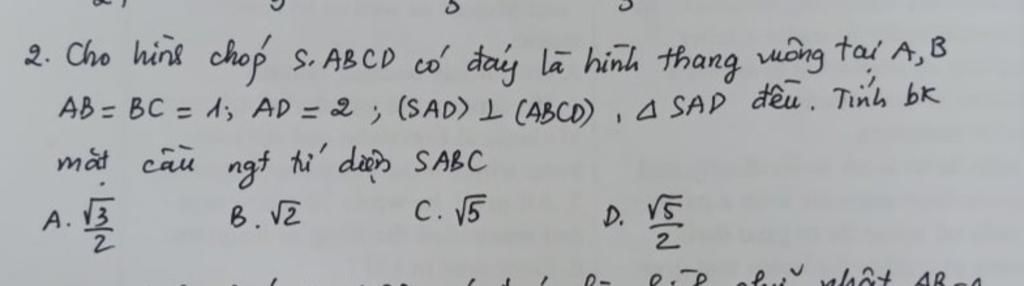 2. Cho hình chóp S.ABCD có đáy là hình thang vuông tại A, B
AB = BC = 1; AD = 2; (SAD) ⊥ (ABCD), Δ SAD đều. Tính bk
mặt cầu ngt tứ diện SABC
A. √3/2 B. √2 C. √5 D. √5/2
nhật AB